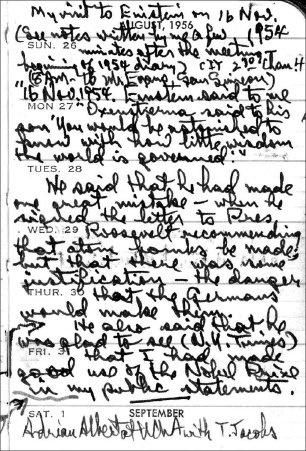 My visit to Einstein on 16 Nov.
AUGUST, 1956
(See notes written by me a few 1954
SUN. 26
minutes after the meeting,
beginning of 1954 diary)
"16 Nov. 1954 Einstein said to me
MON 27 "Oxenstierna said to his
son 'You would be astonished to
know with how little wisdom
the world is governed."
TUES. 28
He said that he had made
one great mistake – when he
signed the letter to Pres.
WED. 29 Roosevelt recommending
that atom bombs be made;
but that there was some
justification – the danger
THUR. 30 that the Germans
would make them.
He also said that he
was glad to see (N.Y. Times)
FRI. 31 that I had made
good use of the Nobel Prize
in my public statements.
SAT. 1 SEPTEMBER
Adrian Albert at with T. Jacobs